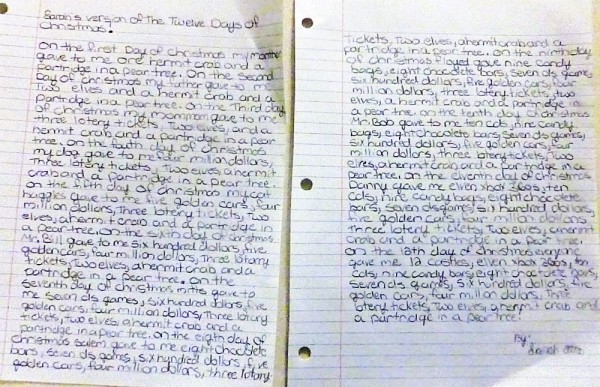 Sarah's version of The Twelve Days of
Christmas!
On the first Day of christmas my mother
gave to me one hermit crab and a
Partridge in a pear tree. On the second
Day of christmas my father gave to me
Two elves and a hermit crab and a
partridge in a pear tree. On the Third day
of christmas my mommom gave to me
three lotery tickets, Two elves, and a
hermit crab and a partridge in a pear
tree. on the fouth day of christmas
my dog gave to me four million dollars,
Three lotery tickets, Two elves, a hermit
crab and a partridge in a pear tree.
on the fifth day of christmas my cat
gave to me five golden cars, four
million dollars, Three lotery tickets, Two
elves, a hermit crab and a partridge in
a pear tree. on the 6th day of christmas
Mr. Bill gave to me six hundred dollars, five
golden cars, four million dollars, Three lotary
tickets, Two elves, a hermit crab and a
partridge in a pear tree. on the
seventh day of christmas gave to
me seven ds games, six hundred dollars, five
golden cars, four million dollars, Three lotery
tickets, Two elves, a hermit crab and a
partridge in a pear tree. on the eigth day of
christmas salem gave to me eight chocolete
bars, seven ds games, six hundred dollars, five
golden cars, four million dollars, three lotary
tickets, Two elves, a hermit crab and a
partridge in a pear tree. on the ninth day
of christmas Floyd gave nine candy
bags, eight chocolete bars, seven ds games,
six hundred dollars, five golden cars, four
million dollars, three lotery tickets, two
elves, a hermit crab and a partridge in
a pear tree. on the tenth day of christmas
Mr. Bob gave to me ten cds, nine candy
bags, eight chocolate bars, seven ds games,
six hundred dollars, five golden cars, four
million dollars, three lotery tickets, Two
elves, a hermit crab and a partridge in a
pear tree. on the eleventh day of christmas
Danny gave me elven xbox 360s, ten
cds, nine candy bags, eight chocolete
bars, seven ds games, six hundred dollars,
five golden cars, four million dollars,
Three lotery tickets, Two elves, a hermit
crab and a partridge in a pear tree.
on the 12th day of christmas everyone
gave me 12 castles, elven xbox 360s, ten
cds, nine candy bars, eight choctolete bars,
seven ds games, six hundred dollars, five
golden cars, four million dollars, Three
lotery tickets, Two elves, a hermit crab and
a partridge in a pear tree!
By: